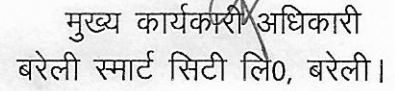 मुख्य कार्यकारी अधिकारी
बरेली स्मार्ट सिटी लि0, बरेली।